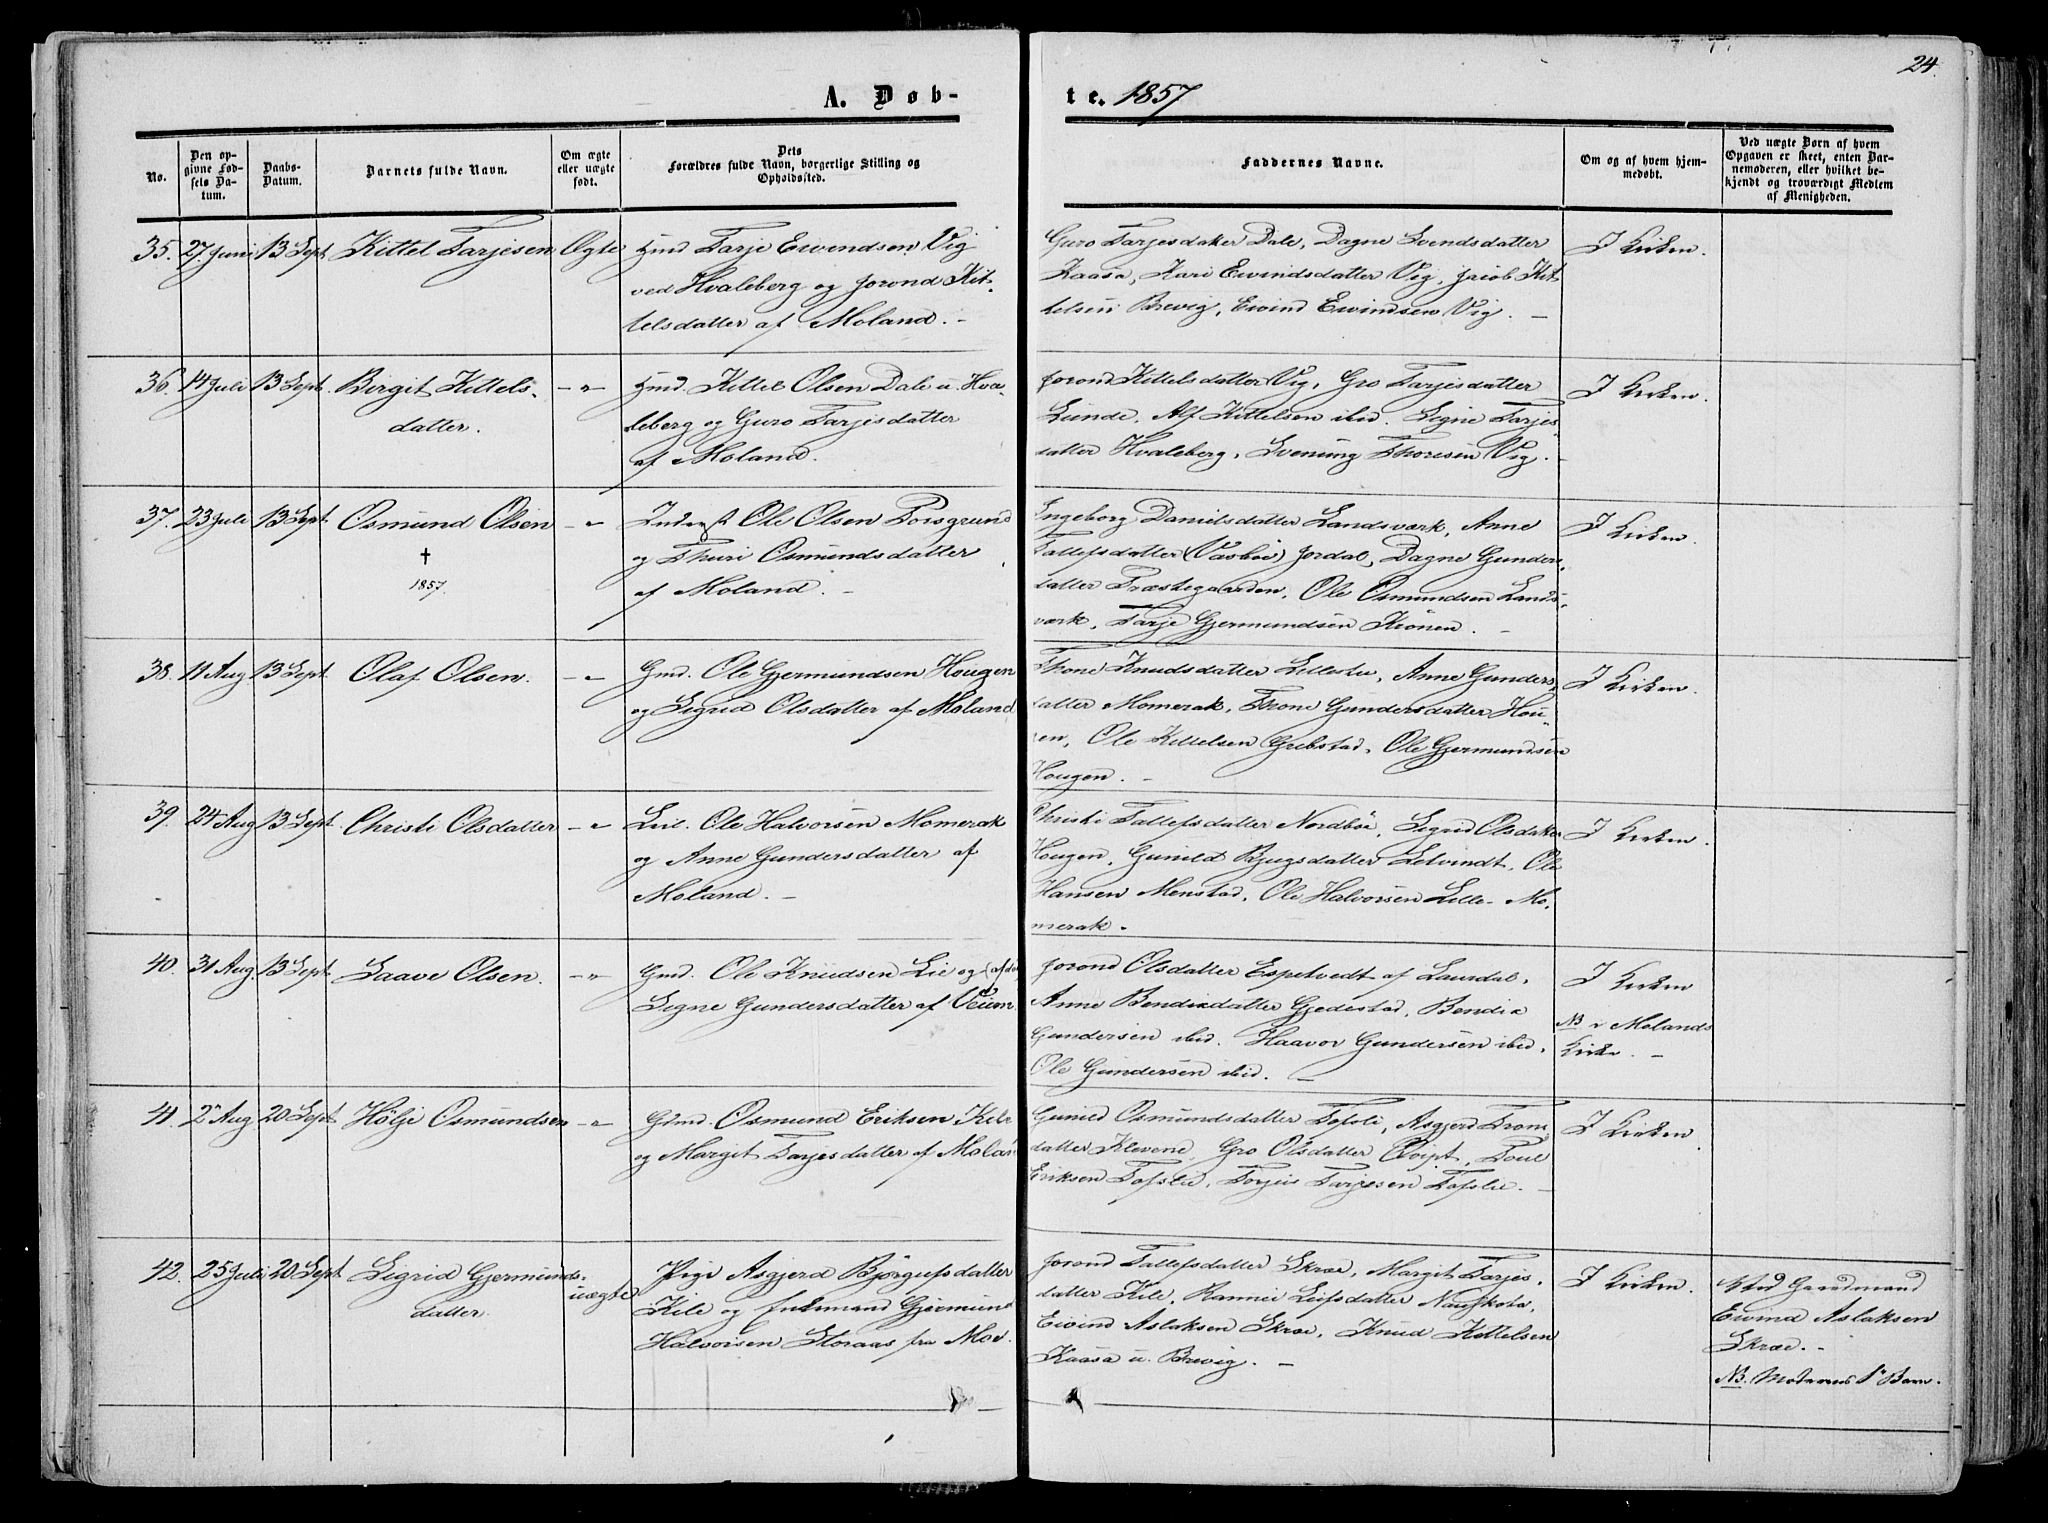 24.
A. Døb-
te. 1857
No.
Den op-
givne Fød-
sels Da-
tum.
Daabs-
Datum.
Barnets fulde Navn.
Om ægte
eller uægte
født.
Dets
Forældres fulde Navn, borgerlige Stilling og
Opholdssted.
Faddernes Navne.
Om og af hvem hjem-
medøbt.
Ved uægte Børn af hvem
Opgaven er skeet, enten Bar-
nemoderen, eller hvilket be-
kjendt og troværdigt Medlem
af Menigheden.
35. 27. Juni 13 Sept. Kittel Tarjesen Ægte
Tarje Eivendsen Vig
ved Hvaleberg og Jorond Kit-
telsdatter af Moland. -
Guro Tarjesdatter Dale, Dagne Svendsdatter
Kaasa, Kari Eivindsdatter Vig, Jacob Kit-
telsen Brevig, Eivind Eivindsen Vig. -
I Kirken.
36. 14 Juli 13 Sept. Birgit Kittels-
datter.
- " -
Hmd. Kittel Olsen Dale u. Hva-
leberg og Guro Tarjesdatter
af Moland.
Jorond Kittelsdatter Vig, Gro Tarjesdatter
Lunde, Alf Kittelsen ibid. Signe Tarjes-
datter Hvaleberg, Svenung Thoresen Vig. -
I Kirken.
37. 23 Juli 13 Sept. Osmund Olsen
†
1857.
- " -
Inderst Ole Olsen Porsgrund
og Thuri Osmundsdatter
af Moland. -
Ingeborg Danielsdatter Landsværk, Anne
Tallefsdatter (Vasboe) Jordal, Dagne Gunders-
datter Præstegaarden, Ole Osmundsen Lands-
værk, Tarje Gjermundsen Kronen. -
I Kirken.
38. 11 Aug. 13 Sept. Olaf Olsen.
- " -
Gmd. Ole Gjermundsen Hougen
og Sigrid Olsdatter af Moland
Thone Knudsdatter Lillestu, Anne Gunders-
datter Momerak, Thone Gundersdatter Hou-
gen, Ole Kittelsen Gribstad, Ole Gjermundsen
Hougen. -
I Kirken.
39. 24 Aug. 13 Sept. Christi Olsdatter
- " -
Leil. Ole Halvorsen Momerak
og Anne Gundersdatter af
Moland. -
Christi Tallefsdatter Nordbøe, Sigrid Olsdatter
Hougen, Gunild Bjugsdatter Selvindt, Ole
Hansen Menstad, Ole Halvorsen Lille- Mo-
merak.
I Kirken.
40. 31 Aug. 13 Sept. Saave Olsen.
- " -
Gmd. Ole Knudsen Lie og
Signe Gundersdatter af Veum
Jorond Olsdatter Espetvedt af Laurdal,
Anne Bendixdatter Gjedestad, Bendix
Gundersen ibid. Haavor Gundersen ibid.
Ole Gundersen ibid. -
I Kirken
NB i Molands
Kirke. -
41. 2 Aug. 20 Sept. Hölje Osmundsen
- " -
Gdmd. Osmund Eriksen Kile
og Margit Tarjesdatter af Molan
Gunild Osmundsdatter Tofsli, Asgjerd Trons
datter Klevene, Gro Olsdatter Qvipt, Poul
Eriksen Tofslie, Torjus Tarjesen Tofslie. -
I Kirken
42. 25 Juli 20 Sept Sigrid Gjermunds-
datter.
uægte
Pige Asgjerd Björgufsdatter
Kile og Gjermund
Halvorsen Storaas fra Moe.
Jorond Tallefsdatter Skræ, Margit Tarjes-
datter Kile, Rannei Leifsdatter Naufskota,
Eivind Aslaksen Skræ, Knud Kittelsen
Kaasa u. Brevig. -
I Kirken.
Ved Gaardmand
Eivind Aslaksen
Skræ. -
NB. Moderens 1ste Barn.